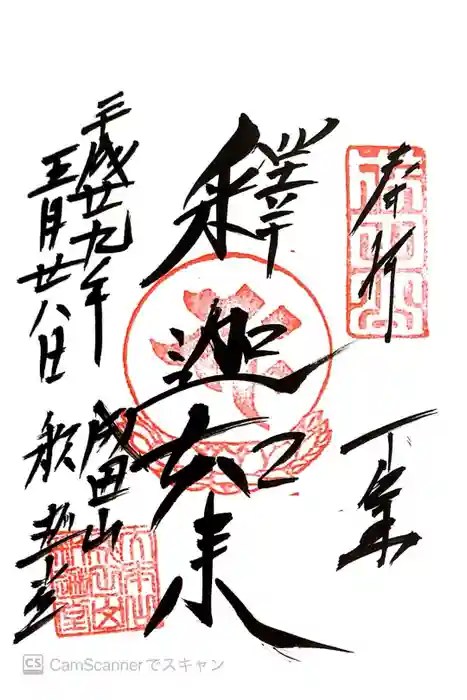 奉拝
釋迦如来
平成廿九年
五月廿八日
成田山
釈迦堂
CS CamScannerでスキャン